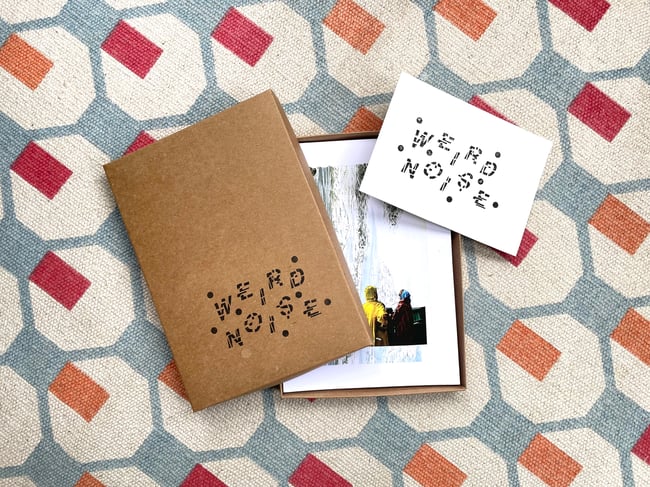 WEIRD
NOISE
WEIRD
NOISE